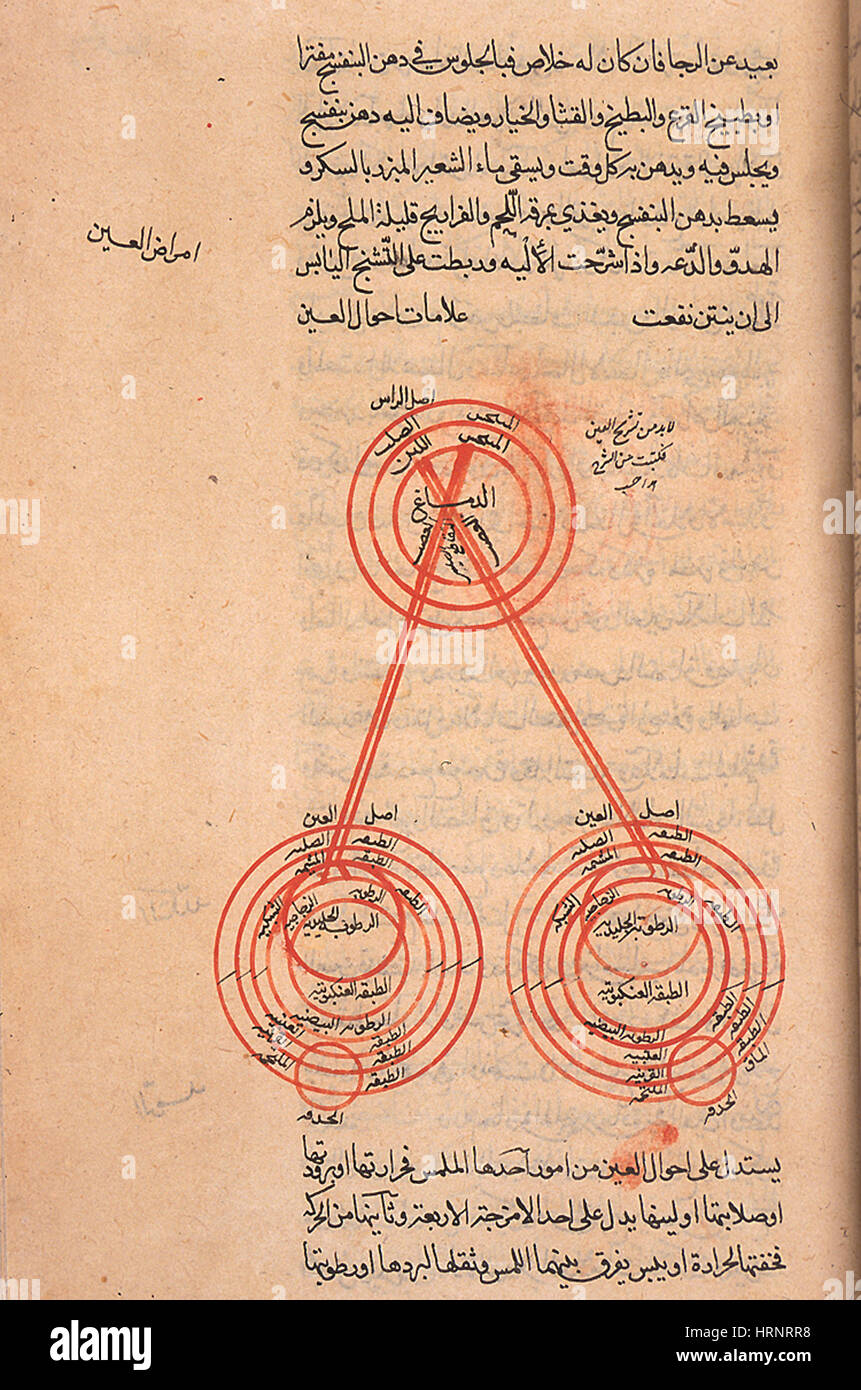 بعيد عن الرجا فان كان له خلاص فبالجلوس في دهن البنفسج مفترا
او بطبيخ القرع والبطيخ والقثا والخيار ويضاف اليه دهن بنفسج
ويجلس فيه ويدهن به كل وقت ويسقى ماء الشعير المبرد بالسكر و
يسعط بدهن البنفسج ويغذي بمرقه اللّحم والفراريج قليلة الملح ويلزم
الهدوّ والدّعه واذا شرّحت الألْيه وربطت على التّشنج اليابس
الى ان ينتن نفعت علامات احوال العين
امراض العين
اصل الراس
الصلب
اللين
الدماغ
العصب
لا بد من تشريح العين
فكتبت من الشرح
اصل العين
الطبقه الصلبه
الطبقه المشيميه
الطبقه الشبكيه
الرطوبه الزجاجيه
الرطوبه الجليديه
الطبقه العنكبوتيه
الرطوبه البيضيه
الطبقه العنبيه
الطبقه القرنيه
الطبقه الملتحمه
الحدقه
اصل العين
الطبقه الصلبه
الطبقه المشيميه
الطبقه الشبكيه
الرطوبه الزجاجيه
الرطوبه الجليديه
الطبقه العنكبوتيه
الرطوبه البيضيه
الطبقه العنبيه
الطبقه القرنيه
الطبقه الملتحمه
الماق
الحدقه
يستدل على احوال العين من امور احدها الملمس فحرارتها او برودتها
او صلابتها او لينها يدل على احد الامزجة الاربعة وثانيها من الحركه
فخفتها لحرارة او يبس يفرق بينهما اللمس وثقلها لبردها او رطوبتها
a alamy stock photo
HRNRR8
www.alamy.com